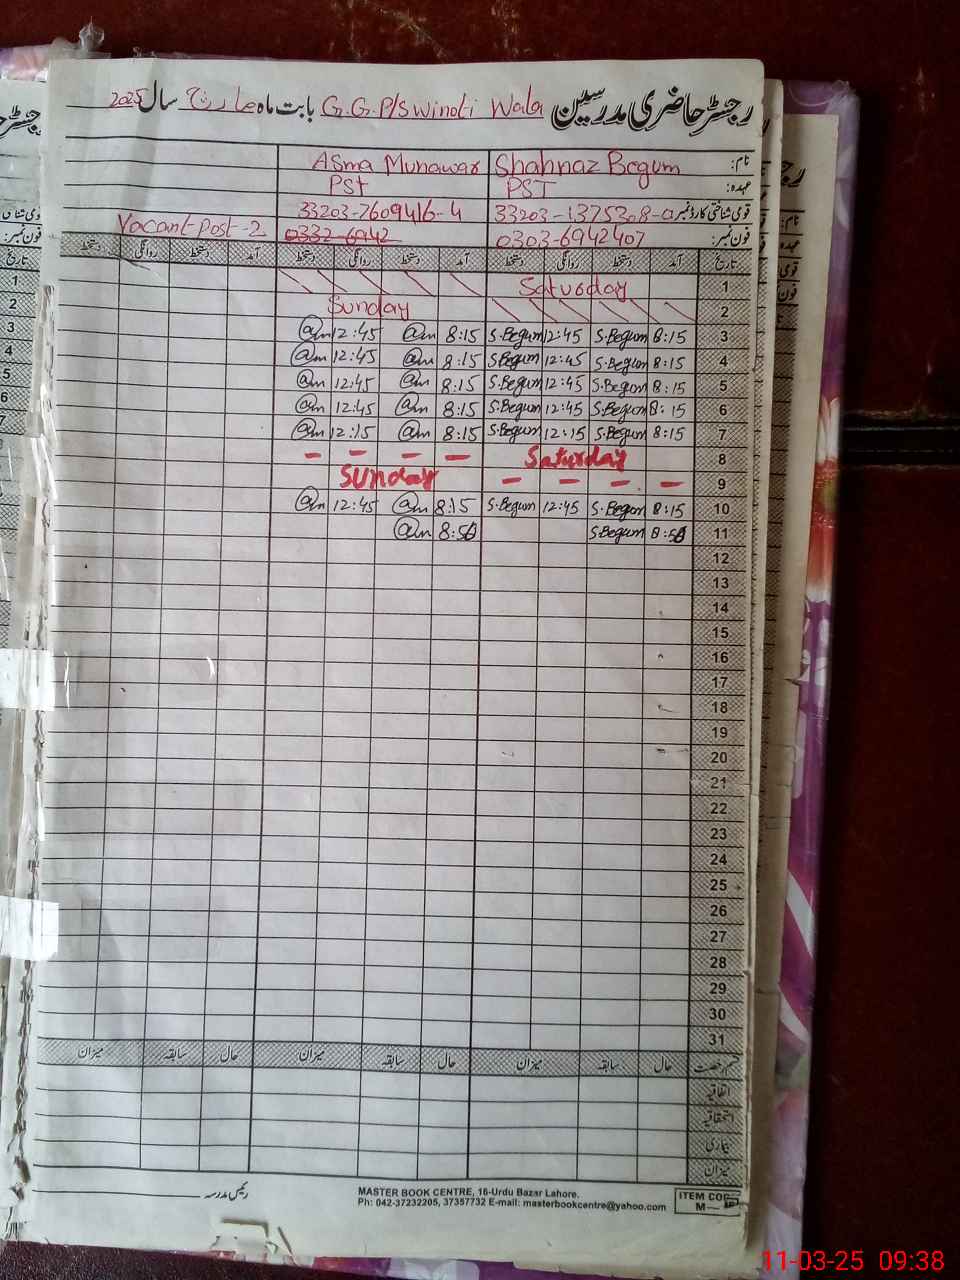 رجسٹر حاضری مدرسین G.G.P/S Winoti Wala بابت ماہ مارچ سال 2025
نام: Shahnaz Begum Asma Munawar
عہدہ: PST PST
قومی شناختی کارڈ نمبر 33203-1375308-0 33203-7609416-4
فون نمبر: 0303-6942407 0332-6942 Vacant Post-2
تاریخ آمد دستخط روانگی دستخط آمد دستخط روانگی دستخط آمد دستخط روانگی دستخط
1 Saturday
2 Sunday
3 8:15 S.Begum 12:45 S.Begum 8:15 @m 12:45 @m
4 8:15 S.Begum 12:45 S.Begum 8:15 @m 12:45 @m
5 8:15 S.Begum 12:45 S.Begum 8:15 @m 12:45 @m
6 8:15 S.Begum 12:45 S.Begum 8:15 @m 12:45 @m
7 8:15 S.Begum 12:15 S.Begum 8:15 @m 12:15 @m
8 Saturday – – – –
9 – – – – Sunday
10 8:15 S.Begum 12:45 S.Begum 8:15 @m 12:45 @m
11 S.Begum @m
12
13
14
15
16
17
18
19
20
21
22
23
24
25
26
27
28
29
30
31
قسم رخصت حال سابقہ میزان حال سابقہ میزان حال سابقہ میزان
اتفاقیہ
استحقاقیہ
بیماری
میزان
رئیس مدرسہ
MASTER BOOK CENTRE, 16-Urdu Bazar Lahore.
Ph: 042-37232205, 37357732 E-mail: masterbookcentre@yahoo.com
ITEM CODE
M—
11-03-25 09:38